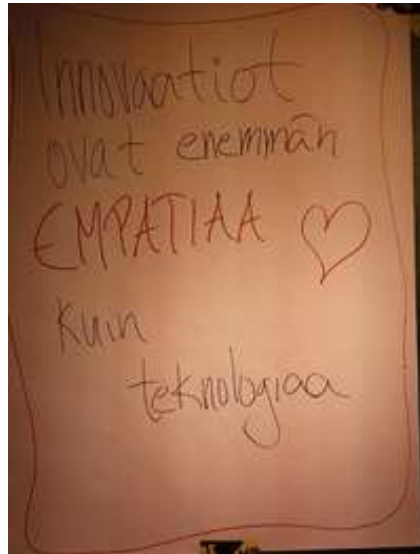 Innovaatiot
ovat enemmän
EMPATIAA
kuin
teknologiaa